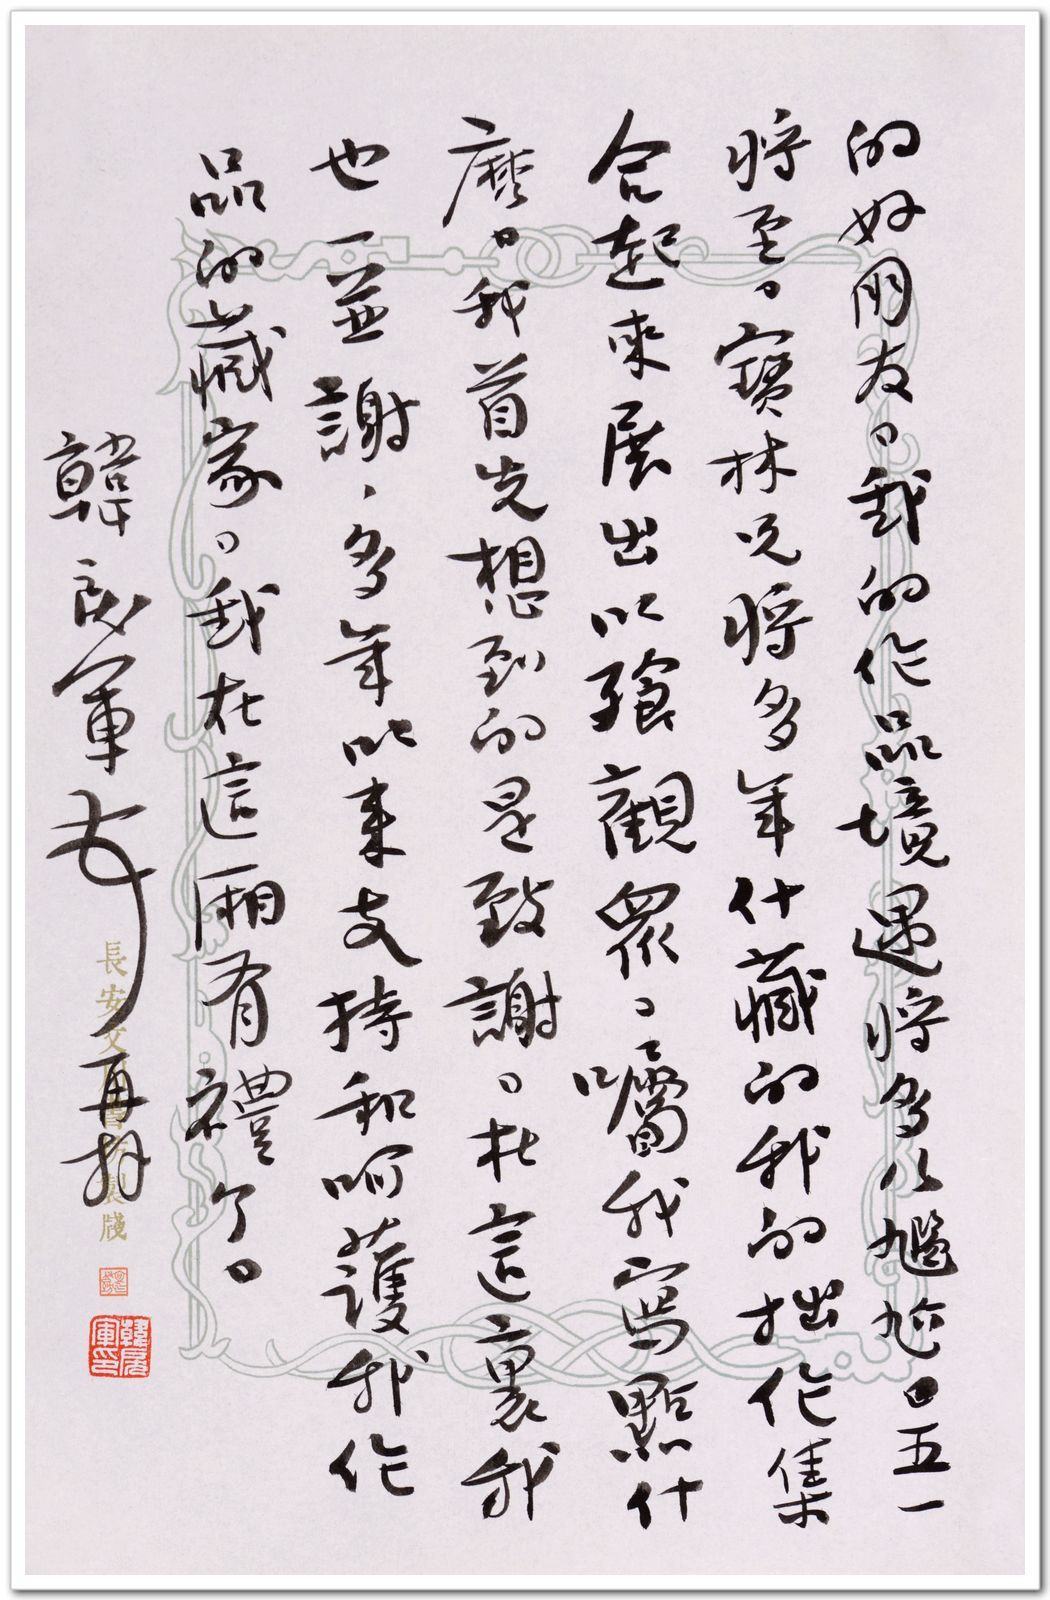 的好朋友。我的作品境遇將多么尷尬。五一
將至。寶林兄將多年什藏的我的拙作集
合起來展出以饗觀眾。囑我寫點什
麼。我首先想到的是致謝。在這裏我
也一並謝謝多年以來支持和呵護我作
品的藏家。我在這廂有禮了。
韓 軍 再拜
長安 製牋